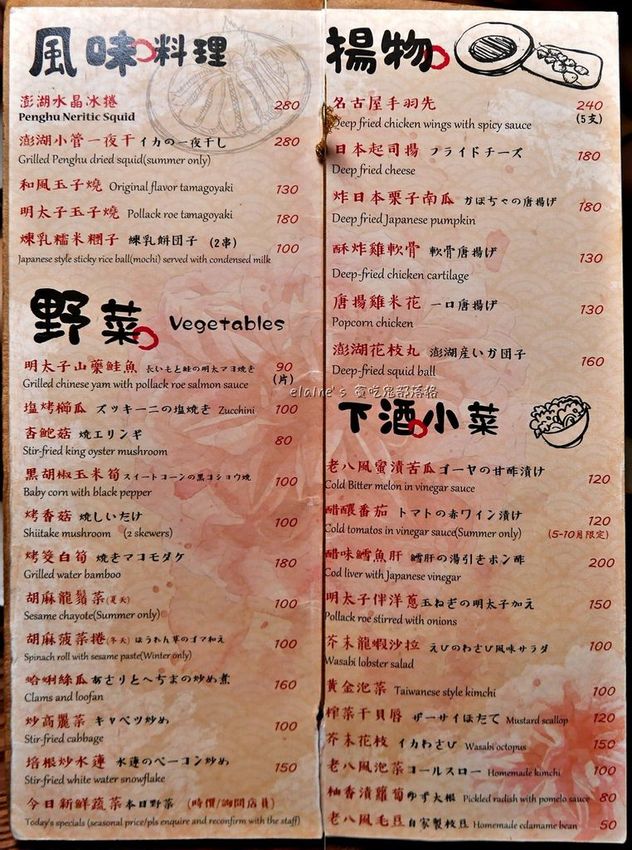 風味料理
澎湖水晶冰捲 280
Penghu Neritic Squid
澎湖小管一夜干 イカの一夜干し 280
Grilled Penghu dried squid(summer only)
和風玉子燒 Original flavor tamagoyaki 130
明太子玉子燒 Pollack roe tamagoyaki 180
煉乳糯米糰子 練乳餅団子 (2串) 100
Japanese style sticky rice ball(mochi) served with condensed milk
野菜 Vegetables
明太子山藥鮭魚 長いもと鮭の明太マヨ焼き 90
Grilled chinese yam with pollack roe salmon sauce (片)
塩烤櫛瓜 ズッキーニの塩焼き Zucchini 100
杏鮑菇 焼エリンギ 80
Stir-fried king oyster mushroom
黑胡椒玉米筍 スイートコーンの黒コショウ焼 100
Baby corn with black pepper
烤香菇 焼しいたけ 100
Shiitake mushroom (2 skewers)
烤筊白筍 焼きマコモダケ 180
Grilled water bamboo
胡麻龍鬚菜(夏天) 100
Sesame chayote(Summer only)
胡麻菠菜捲(冬天) ほうれん草のゴマ和え 100
Spinach roll with sesame paste(Winter only)
哈唎絲瓜 あさりとへちまの炒め煮 160
Clams and loofan
炒高麗菜 キャベツ炒め 100
Stir-fried cabbage
培根炒水蓮 水蓮のベーコン炒め 150
Stir-fried white water snowflake
今日新鮮蔬菜 本日野菜 (時價/詢問店員)
Today's specials (seasonal price/pls enquire and reconfirm with the staff)
揚物
名古屋手羽先 240
Deep fried chicken wings with spicy sauce (5支)
日本起司揚 フライドチーズ 180
Deep fried cheese
炸日本栗子南瓜 かぼちゃの唐揚げ 180
Deep fried Japanese pumpkin
酥炸雞軟骨 軟骨唐揚げ 130
Deep-fried chicken cartilage
唐揚雞米花 一口唐揚げ 130
Popcorn chicken
澎湖花枝丸 澎湖産いか団子 160
Deep-fried squid ball
elaine's 賓吃鬼部落格
下酒小菜
老八風蜜漬苦瓜 ゴーヤの甘酢漬け 120
Cold Bitter melon in vinegar sauce
醋釀番茄 トマトの赤ワイン漬け 120
Cold tomatos in vinegar sauce(Summer only) (5-10月限定)
醋味鱈魚肝 鱈肝の湯引きポン酢 200
Cod liver with Japanese vinegar
明太子伴洋蔥 玉ねぎの明太子加え 150
Pollack roe stirred with onions
芥末龍蝦沙拉 えびのわさび風味サラダ 100
Wasabi lobster salad
黃金泡菜 Taiwanese style kimchi 100
榨菜干貝唇 ザーサイほたて Mustard scallop 120
芥末花枝 イカわさび Wasabi octopus 150
老八風泡菜 コールスロー Homemade kimchi 100
柚香漬蘿蔔 ゆず大根 Pickled radish with pomelo sauce 80
老八風毛豆 自家製枝豆 Homemade edamame bean 50